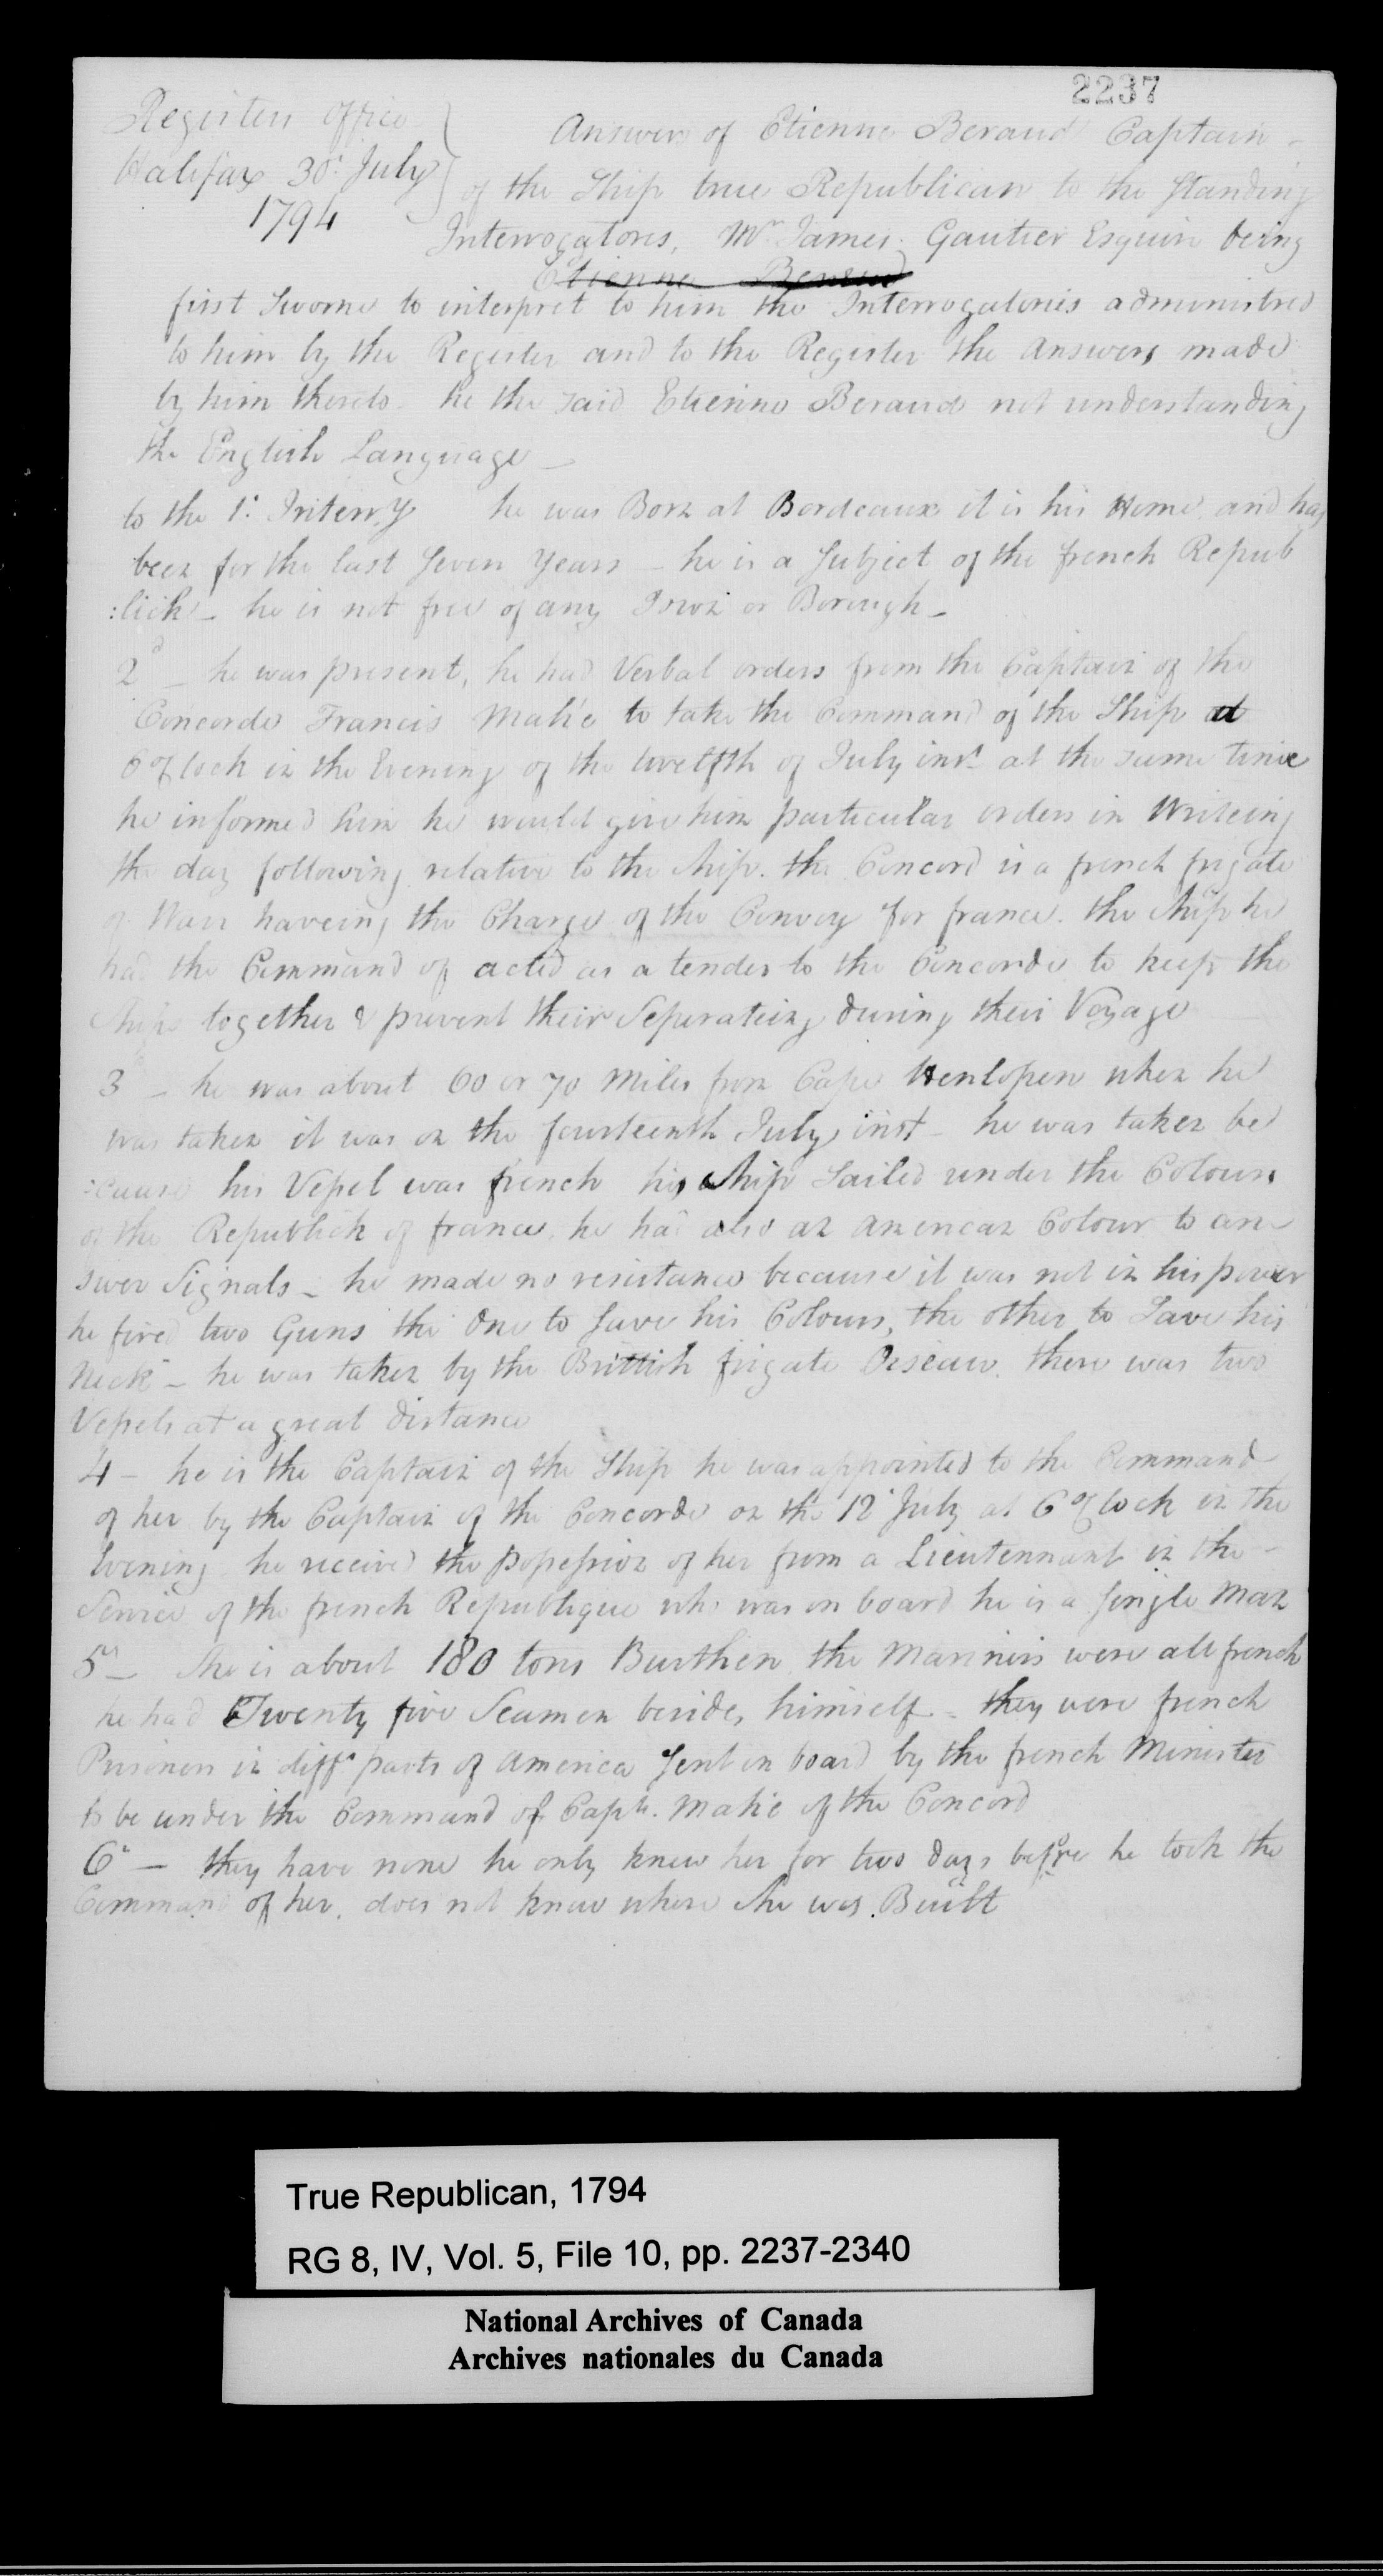 2237
Registers Office
Halifax 30: July
1794
Answers of Etienne Beraud Captain
of the Ship true Republican to the Standing
Interrogatores, Mr James Gautier Esquire being
Etienne Beraud
first Sworne to interpret to him the Interrogatories administred
to him by the Register and to the Register the Answers made
by him thereto he the said Etienne Beraud not understanding
the English Language
to the 1: Interry he was Born at Bordeaux it is his Home and has
been for the last Seven Years – he is a Subject of the french Repub
:lick – he is not free of any Town or Borough –
2d – he was present, he had Verbal orders from the Captain of the
Concorde Francis Mahé to take the Command of the Ship at
6 oClock in the Evening of the twelfth of July inst at the same time
he informed him he would give him particular orders in Writeing
the day following relative to the Ship. the Concord is a french frigate
of Warr haveing the Charge of the Convoy for france. the Ship he
had the Command of acted as a tender to the Concorde to keep the
Ships together & prevent their Seperateing during their Voyage
3 – he was about 60 or 70 Miles from Cape Henlopen when he
was taken it was on the fourteenth July inst – he was taken be
:cause his Vessel was french his Ship Sailed under the Colours
of the Republick of france, he had also an American Colour to an
swer Signals – he made no resistance because it was not in his power
he fired two Guns the One to Save his Colours, the other to Save his
Neck – he was taken by the Brittish frigate Oiseau. there was two
Vessels at a great distance
4 – he is the Captain of the Ship he was appointed to the Command
of her by the Captain of the Concorde on the 12 July at 6 oClock in the
Evening he received the possession of her from a Lieutennant in the
Service of the french Republique who was on board he is a Single Man
5 – She is about 180 tons Burthen the Mariners were all french
he had Twenty five Seamen besides himself – they were french
Prisoners in difft parts of America Sent on board by the french Minister
to be under the Command of Capt. Mahé of the Concord
6 – they have none he only knew her for two days before he took the
Command of her. does not know where she was Built
True Republican, 1794
RG 8, IV, Vol. 5, File 10, pp. 2237-2340
National Archives of Canada
Archives nationales du Canada